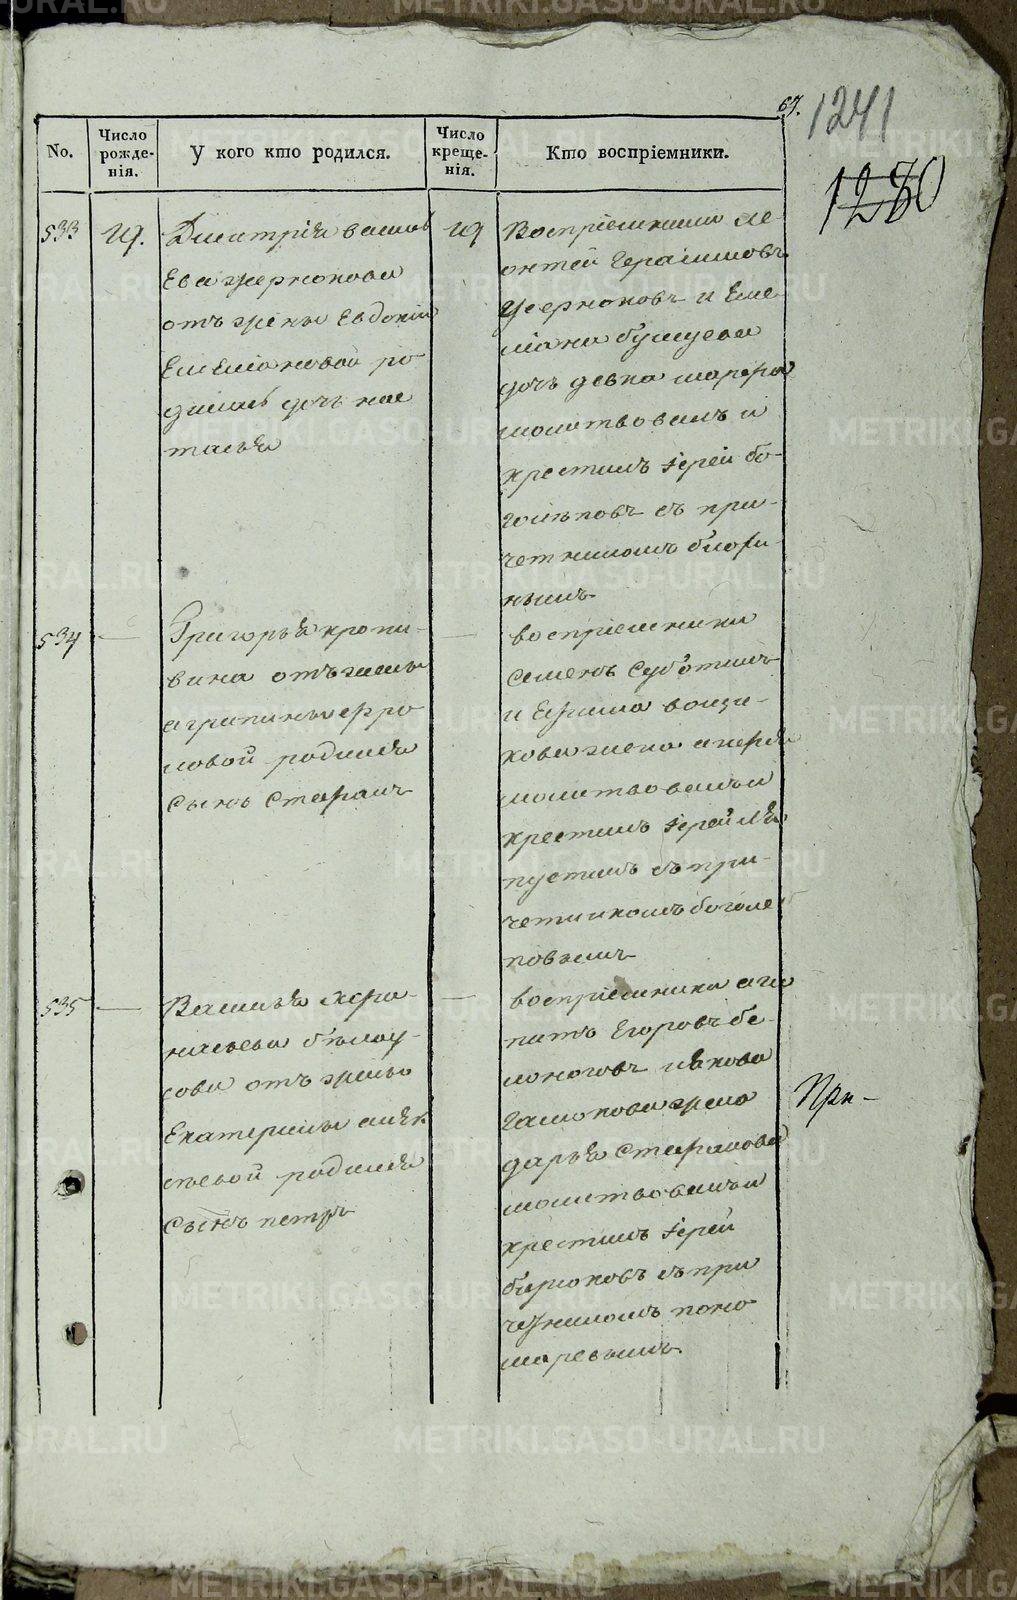 67.
1241
1280
No.
Число рожде-нія.
У кого кто родился.
Число креще-нія.
Кто воспріемники.
533
19.
Дмитрія василь
Ева жерноковa
отъ жены Евдокіи
Емеліановой ро
дилась дочь нас
тасья
19
Воспріемники ле
онтей Герасимовъ
жерноковъ и Еме
дочь девка марфа
молитвовалъ и
крестилъ Іерей бо-
голеповъ съ при-
четникомъ
нымъ
534
Григорья кропи-
вина отъ жены
агрипины фро
ловой родился
сынъ стефанъ
воспріемники
Семенъ Суботинъ
и Ефима
кова жена
молитвовалъ и
крестилъ Іерей ля
пустинъ съ при-
четникомъ боголе
повымъ
535
Василья Афо-
насьева белоу-
сова отъ жены
Екатерины алек
сеевой родился
сынъ петръ
воспріемники ага
питъ Егоровъ бе-
лоноговъ иякова
жена
дарья стефанова
молитвовалъ и
крестилъ Іерей
бирюковъ съ при
четникомъ поно
маревымъ.
При-
METRIKI.GASO-URAL.RU